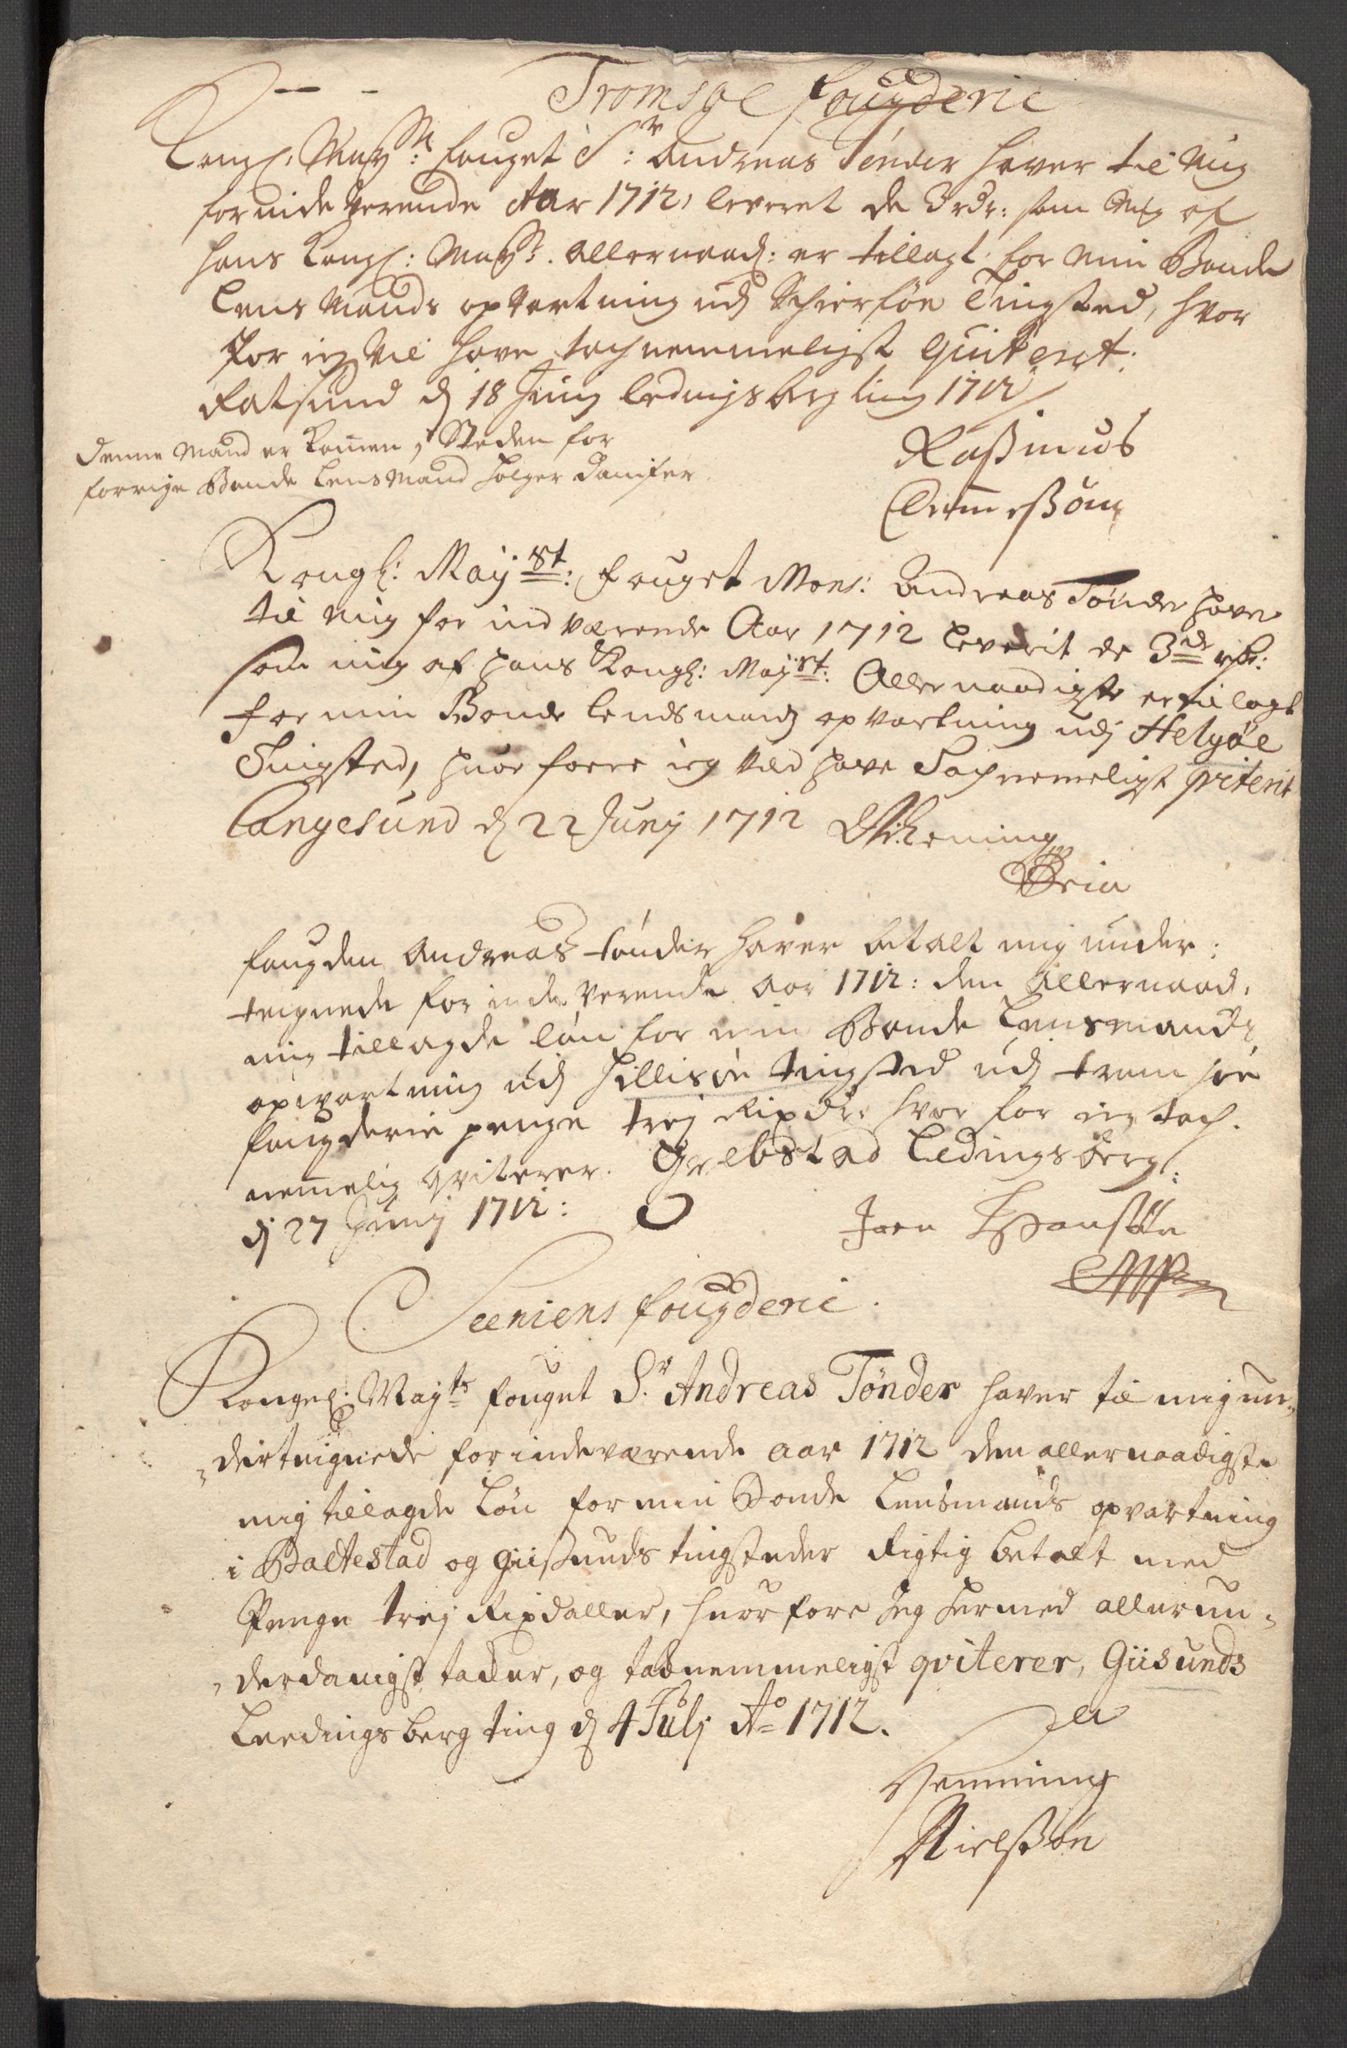 Tromsøe fougderie
Kongl: Mayst: fouget Sr: Andreas Tønder haver til Mig
for inde Verende Aar 1712, leveret de 3 rdr: som Mig af
hans Kongl: Mayst: allernaad: er tillagt for Min Bonde
Lens Mands opvartning udj Schierføe Tingsted, hvor
for ieg Vil have tachnemmeligst Quiterit.
Ratsund d 18 Junj Ledingsberg ting 1712
Denne Mand er komen j Steden for
forrige Bonde Lens Mand Holger Danifer
Rasmus
Kongl: Mayst: fouget Mons: Andreas Tønder haver
til Mig for ind værende Aar 1712 leverit de 3de rdr:
som mig af Hans Kongl: Mayst: Allernaadigste er tilagt
for min Bonde Lendsmands opvartning udj Helgøe
Tingsted, huor foere ieg Vil have Tachnemeligst qviterit
Langesund d 22 Junj 1712
fougden Andreas Tønder haver betalt mig under:
teignede for inde Verende Aar 1712: den allernaad:
mig tillagde løn for min Bonde Lensmands
opvartning udj Hillisøe tingsted udj Tromsøe
fougderie penge trej Rixdlr hvor for ieg tach.
nemmelig qviterer. Grebstad Ledingsberg:
d 27 Junj 1712:
Joen Hansøn
Seeniens fougderie.
Kongel: Mayts fouget Sr. Andreas Tønder haver til mig un¬
¬derteignede for indeværende aar 1712 den allernaadigste
mig tillagde Løn for min Bonde Lensmands opvartning
i Baltestad og Giisunds tingsteder Rigtig betalt med
Penge trej Rixdaller, huorfore Jeg hermed allerun¬
¬derdanigst tacker, og tachnemmeligst qviterer, Giisunds
Leedingsberg ting d 4 Julj Ao 1712.
Henning
Nielssøn